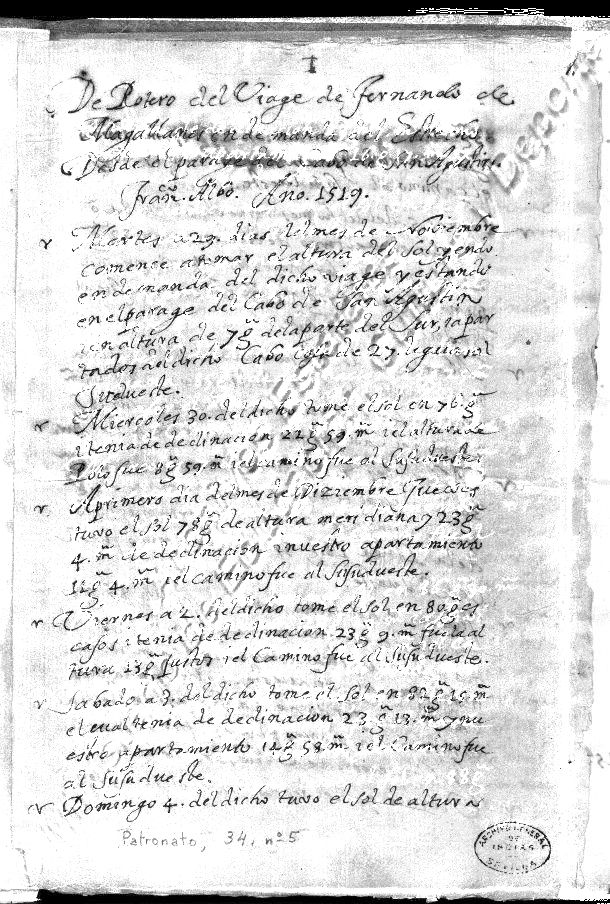 De Rotero del Viage de Fernando de
Magallanes en demanda del Estrecho
Desde el parage del Cabo de San Agustin.
Fran.co Albo. Ano. 1519.
Martes a 29. dias del mes de Noviembre
comence a tomar el altura del Sol yendo
en demanda del dicho viage y estando
en el parage del Cabo de San Agustin
i en altura de 7g. de la parte del Sur, i apar
tados del dicho Cabo de 27. leguas al
Sudueste.
Miercoles 30. del dicho tome el sol en 76.g
i tenia de declinacion 22g 59.m i el altura de
Polo fue 8g 59.m i el camino fue al Susudueste.
A primero dia del mes de Diziembre Jueves
tuvo el sol 78g de altura meridiana y 23g
4.m de declinacion i nuestro apartamiento
12g 4.m i el camino fue al Susudueste.
Viernes a 2. del dicho tome el sol en 80.g es
casos i tenia de declinacion 23g 9.m fue la al
tura 13g Justos i el Camino fue al Susudueste.
Sabado a 3. del dicho tome el sol en 82g 15.m
el cual tenia de declinacion 23g 13.m y nu
estro apartamiento 14g 58.m i el Camino fue
al Susudueste.
Domingo 4. del dicho tuvo el sol de altura
Patronato, 34, nº 5
ARCHIVO GENERAL
DE
INDIAS
SEVILLA